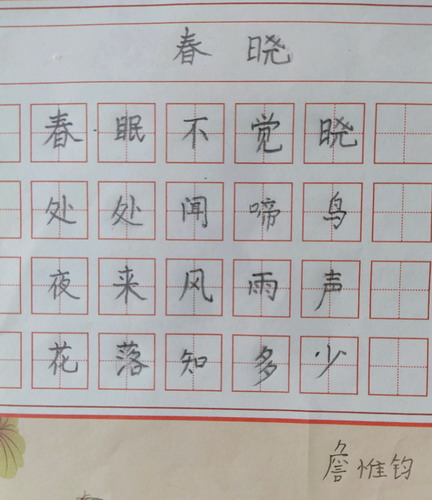 春晓
春眠不觉晓
处处闻啼鸟
夜来风雨声
花落知多少
詹惟钧